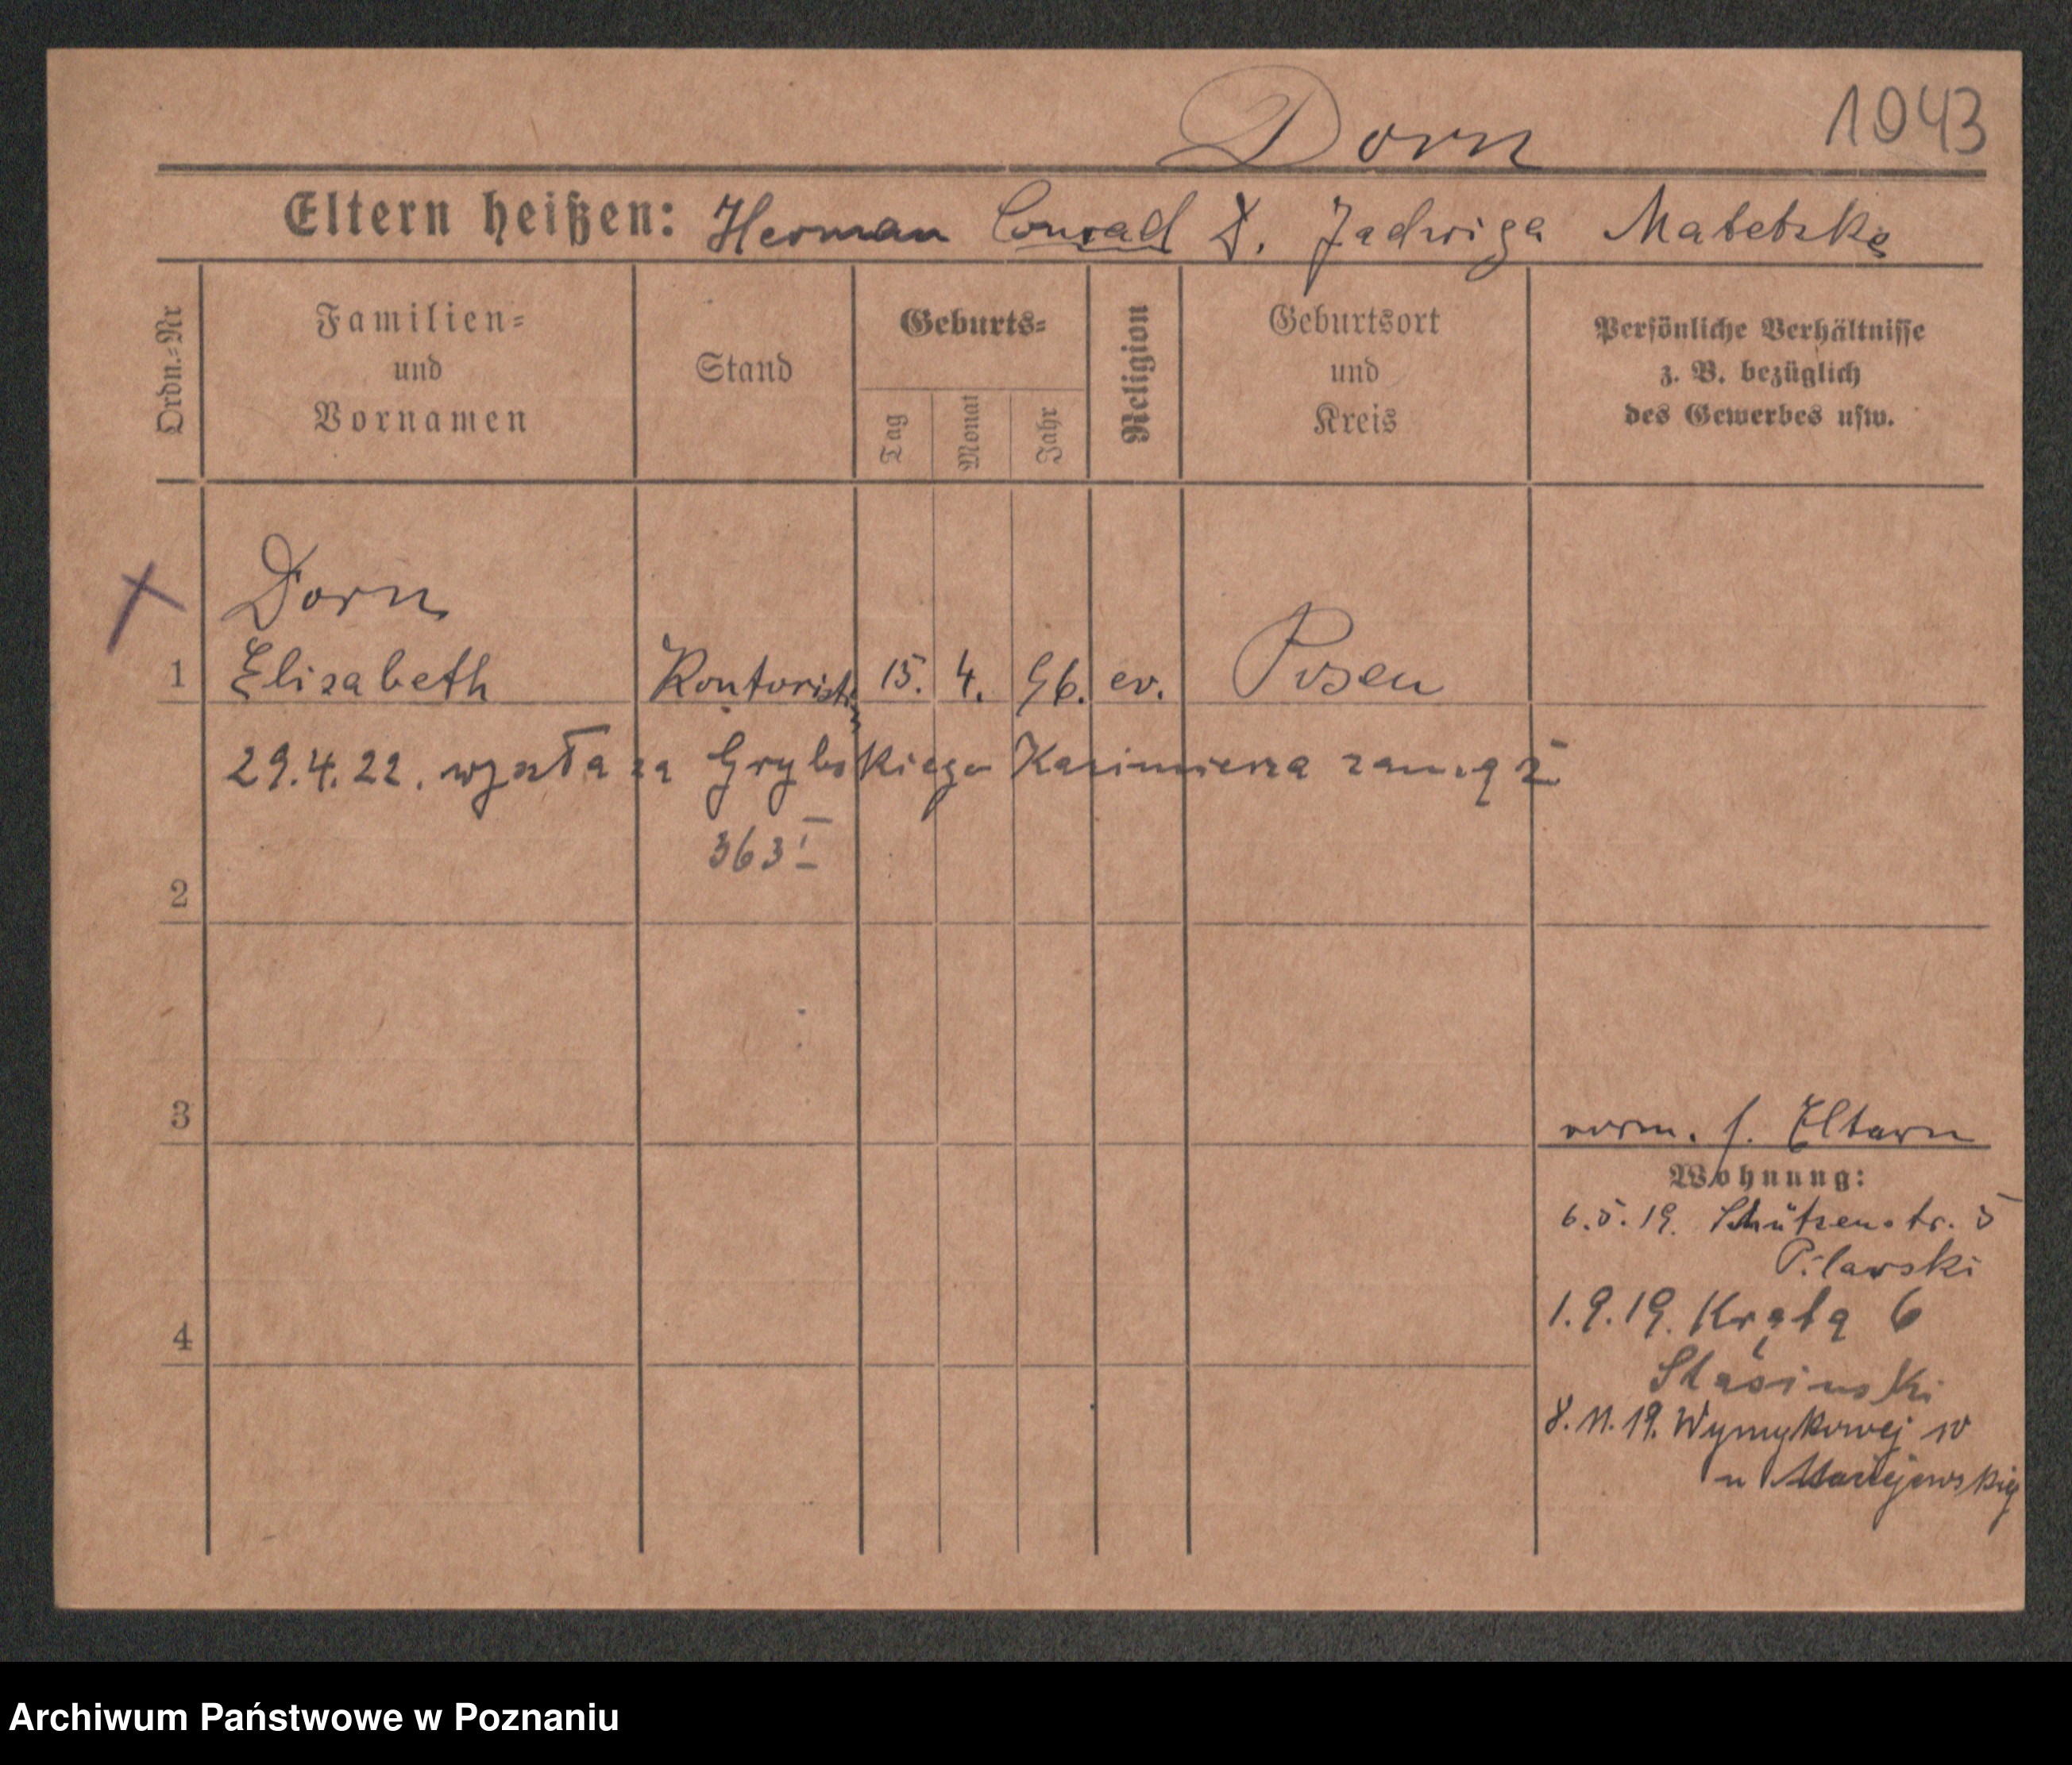 Dorn
1043
Eltern heißen: Herman Conrad D. Jadwiga Matetzke
Ordn.-Nr
Familien-
und
Vornamen
Stand
Geburts-
Tag
Monat
Jahr
Religion
Geburtsort
und
Kreis
Persönliche Verhältnisse
z. B. bezüglich
des Gewerbes usw.
Dorn
1 Elisabeth Kontoristin 15. 4. 96. ev. Posen
29.4.22. wyszła za Grybskiego Kazimierza zamąż
363 I
2
3
vorm. s. Eltern
Wohnung:
6.5.19. Schützenstr. 5
Pilarski
1.9.19. Kręta 6
4
Stasinski
8.11.19. Wymykowej 10
u Maciejewskiej
Archiwum Państwowe w Poznaniu